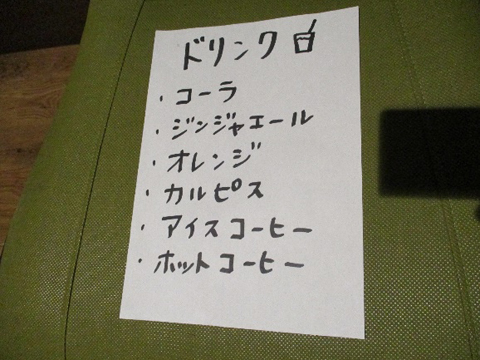 ドリンク
・コーラ
・ジンジャエール
・オレンジ
・カルピス
・アイスコーヒー
・ホットコーヒー